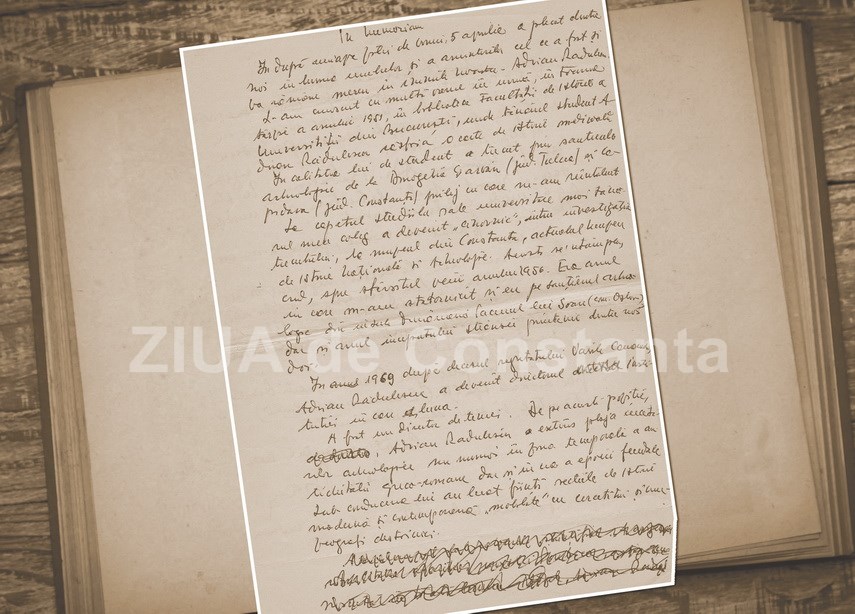 In memoriam
În după amiaza zilei de luni, 5 aprilie a plecat dintre
noi în lumea umbrelor și a amintirilor cel ce a fost și
va rămâne mereu în inimile noastre - Adrian Rădulescu.
L-am cunoscut cu multă vreme în urmă, în toamna
târzie a anului 1951, în biblioteca Facultății de Istorie a
Universității din București, unde tânărul student A-
drian Rădulescu răsfoia o carte de istorie medievală
În calitatea lui de student a trecut prin șantierele
arheologice de la Dinogetia Garvăn (jud. Tulcea) și Ca-
pidava (jud. Constanța) prilej cu care ne-am reîntâlnit
La capătul studiilor sale universitare mai tână-
rul meu coleg a devenit „cihovnic”, întru investigația
trecutului, la muzeul din Constanța, actualul muzeu
de istorie națională și arheologie. Aceasta se întâmpla,
cred, spre sfârșitul verii anului 1956. Era anul
în care m-am statornicit și eu pe șantierul arheo-
logic din insula dunăreană Păcuiul lui Soare (com. Ostrov)
dar și anul începutului strânsei prietenii dintre noi
doi.
În anul 1969 după decesul regretatului Vasile Canarache
Adrian Rădulescu a devenit directorul insti-
tuției în care
A fost un director de temei. De pe acestă poziție,
Adrian Rădulescu a extins plaja cercetă-
rilor arheologice nu numai în zona temporală a an
tichității greco-romane dar și în cea a epocii feudale.
Sub conducerea lui au luat ființă secțiile de istorie
modernă și contemporană „mobilate” cu cercetători și muze-
ografi destoinici.
ZIUA de Constanta